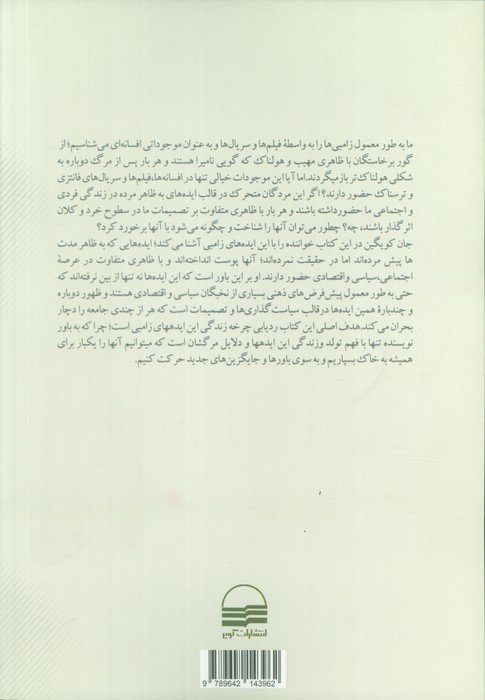 ما به طور معمول زامبی‌ها را به واسطهٔ فیلم‌ها و سریال‌ها و به عنوان موجوداتی افسانه‌ای می‌شناسیم؛ از
گور برخاستگان با ظاهری مهیب و هولناک که گویی نامیرا هستند و هر بار پس از مرگ دوباره به
شکلی هولناک‌تر بازمیگردند.اما آیا این موجودات خیالی تنها در افسانه‌ها،فیلم‌ها و سریال‌های فانتزی
و ترسناک حضور دارند؟ اگر این مردگان متحرک در قالب ایده‌های به ظاهر مرده در زندگی فردی
و اجتماعی ما حضور داشته باشند و هر بار با ظاهری متفاوت بر تصمیمات ما در سطوح خرد و کلان
اثر گذار باشند، چه؟ چطور می‌توان آنها را شناخت و چگونه می‌شود با آنها برخورد کرد؟
جان کویگین در این کتاب خواننده را با این ایده‌های زامبی آشنا می‌کند؛ ایده‌هایی که به ظاهر مدت
ها پیش مرده‌اند اما در حقیقت نمرده‌اند؛ آنها پوست انداخته‌اند و با ظاهری متفاوت در عرصهٔ
اجتماعی،سیاسی و اقتصادی حضور دارند. او بر این باور است که این ایده‌ها نه تنها از بین نرفته‌اند که
حتی به طور معمول پیش فرض‌های ذهنی بسیاری از نخبگان سیاسی و اقتصادی هستند و ظهور دوباره
و چندبارهٔ همین ایده‌ها درقالب سیاست‌گذاری‌ها و تصمیمات است که هر از چندی جامعه را دچار
بحران می کند.هدف اصلی این کتاب ردیابی چرخه زندگی این ایدههای زامبی است؛ چرا که به باور
نویسنده تنها با فهم تولد وزندگی این ایدهها و دلایل مرگشان است که میتوانیم آنها را یکبار برای
همیشه به خاک بسپاریم و به سوی باورها و جایگزین‌های جدید حرکت کنیم.
انتشارات کویر
9 789642 143962